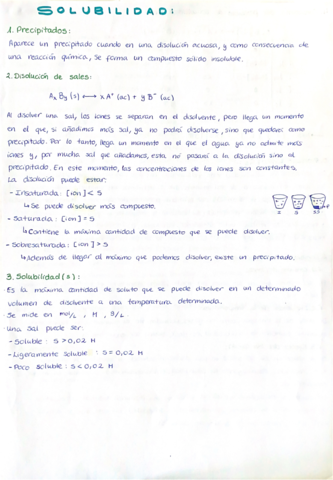 SOLUBILIDAD:
1. Precipitados:
Aparece un precipitado cuando en una disolución acuosa, y como consecuencia de
una reacción química, se forma un compuesto sólido insoluble.
2. Disolución de sales:
Ax By (s) ⟷ x A⁺ (ac) + y B⁻ (ac)
Al disolver una sal, los iones se separan en el disolvente, pero llega un momento
en el que, si añadimos más sal, ya no podrá disolverse, sino que quedará como
precipitado. Por lo tanto, llega un momento en el que el agua ya no admite más
iones y, por mucha sal que añadamos, esta no pasará a la disolución sino al
precipitado. En este momento, las concentraciones de los iones son constantes.
La disolución puede estar:
- Insaturada: [ion] < S
↳ Se puede disolver más compuesto.
- Saturada: [ion] = S
↳ Contiene la máxima cantidad de compuesto que se puede disolver.
- Sobresaturada: [ion] > S
↳ Además de llegar al máximo que podemos disolver, existe un precipitado.
I S SS
3. Solubilidad (s):
· Es la máxima cantidad de soluto que se puede disolver en un determinado
volumen de disolvente a una temperatura determinada.
· Se mide en mol/L, M, g/L
· Una sal puede ser:
- Soluble: S > 0,02 M
- Ligeramente soluble: S = 0,02 M
- Poco soluble: S < 0,02 M